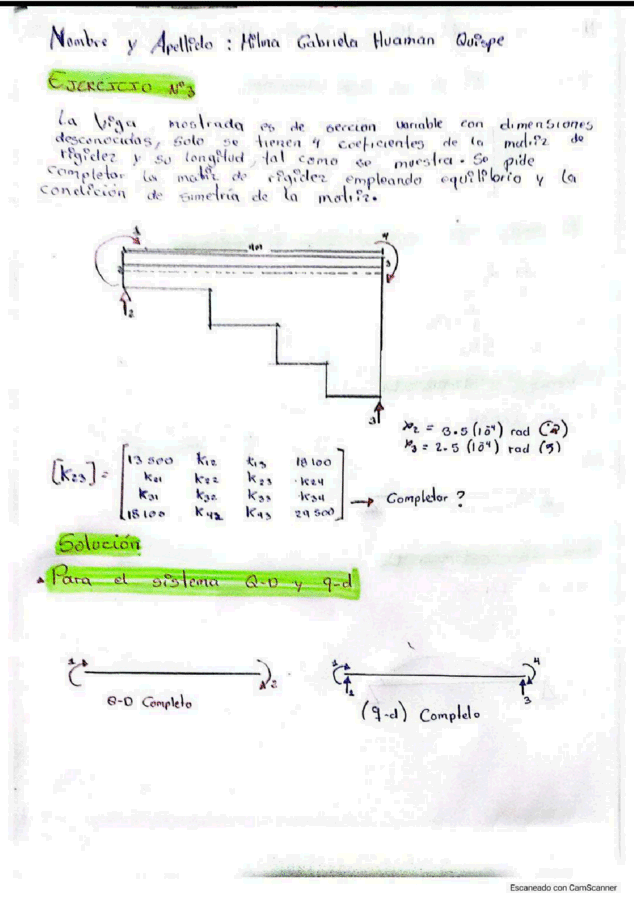 Nombre y Apellido : Milma Gabriela Huaman Quispe
EJERCICIO N°3
La Viga mostrada es de sección variable con dimensiones
desconocidas, solo se tienen 4 coeficientes de la matriz de
rigidez y su longitud, tal como se muestra. Se pide
completar la matiz de rigidez empleando equilibrio y la
condición de simetría de la matriz.
1
4
2
3
2
3
= 3.5 (10⁴) rad
= 2.5 (10⁴) rad
[K23] =
13 500 K12 K13 18 100
K21 K22 K23 K24
K31 K32 K33 K34
18 100 K42 K43 29 500
→ Completar ?
Solución
Para el sistema Q-D y q-d
1
2
Q-D Completo
1
4
2
3
(q-d) Completo
Escaneado con CamScanner